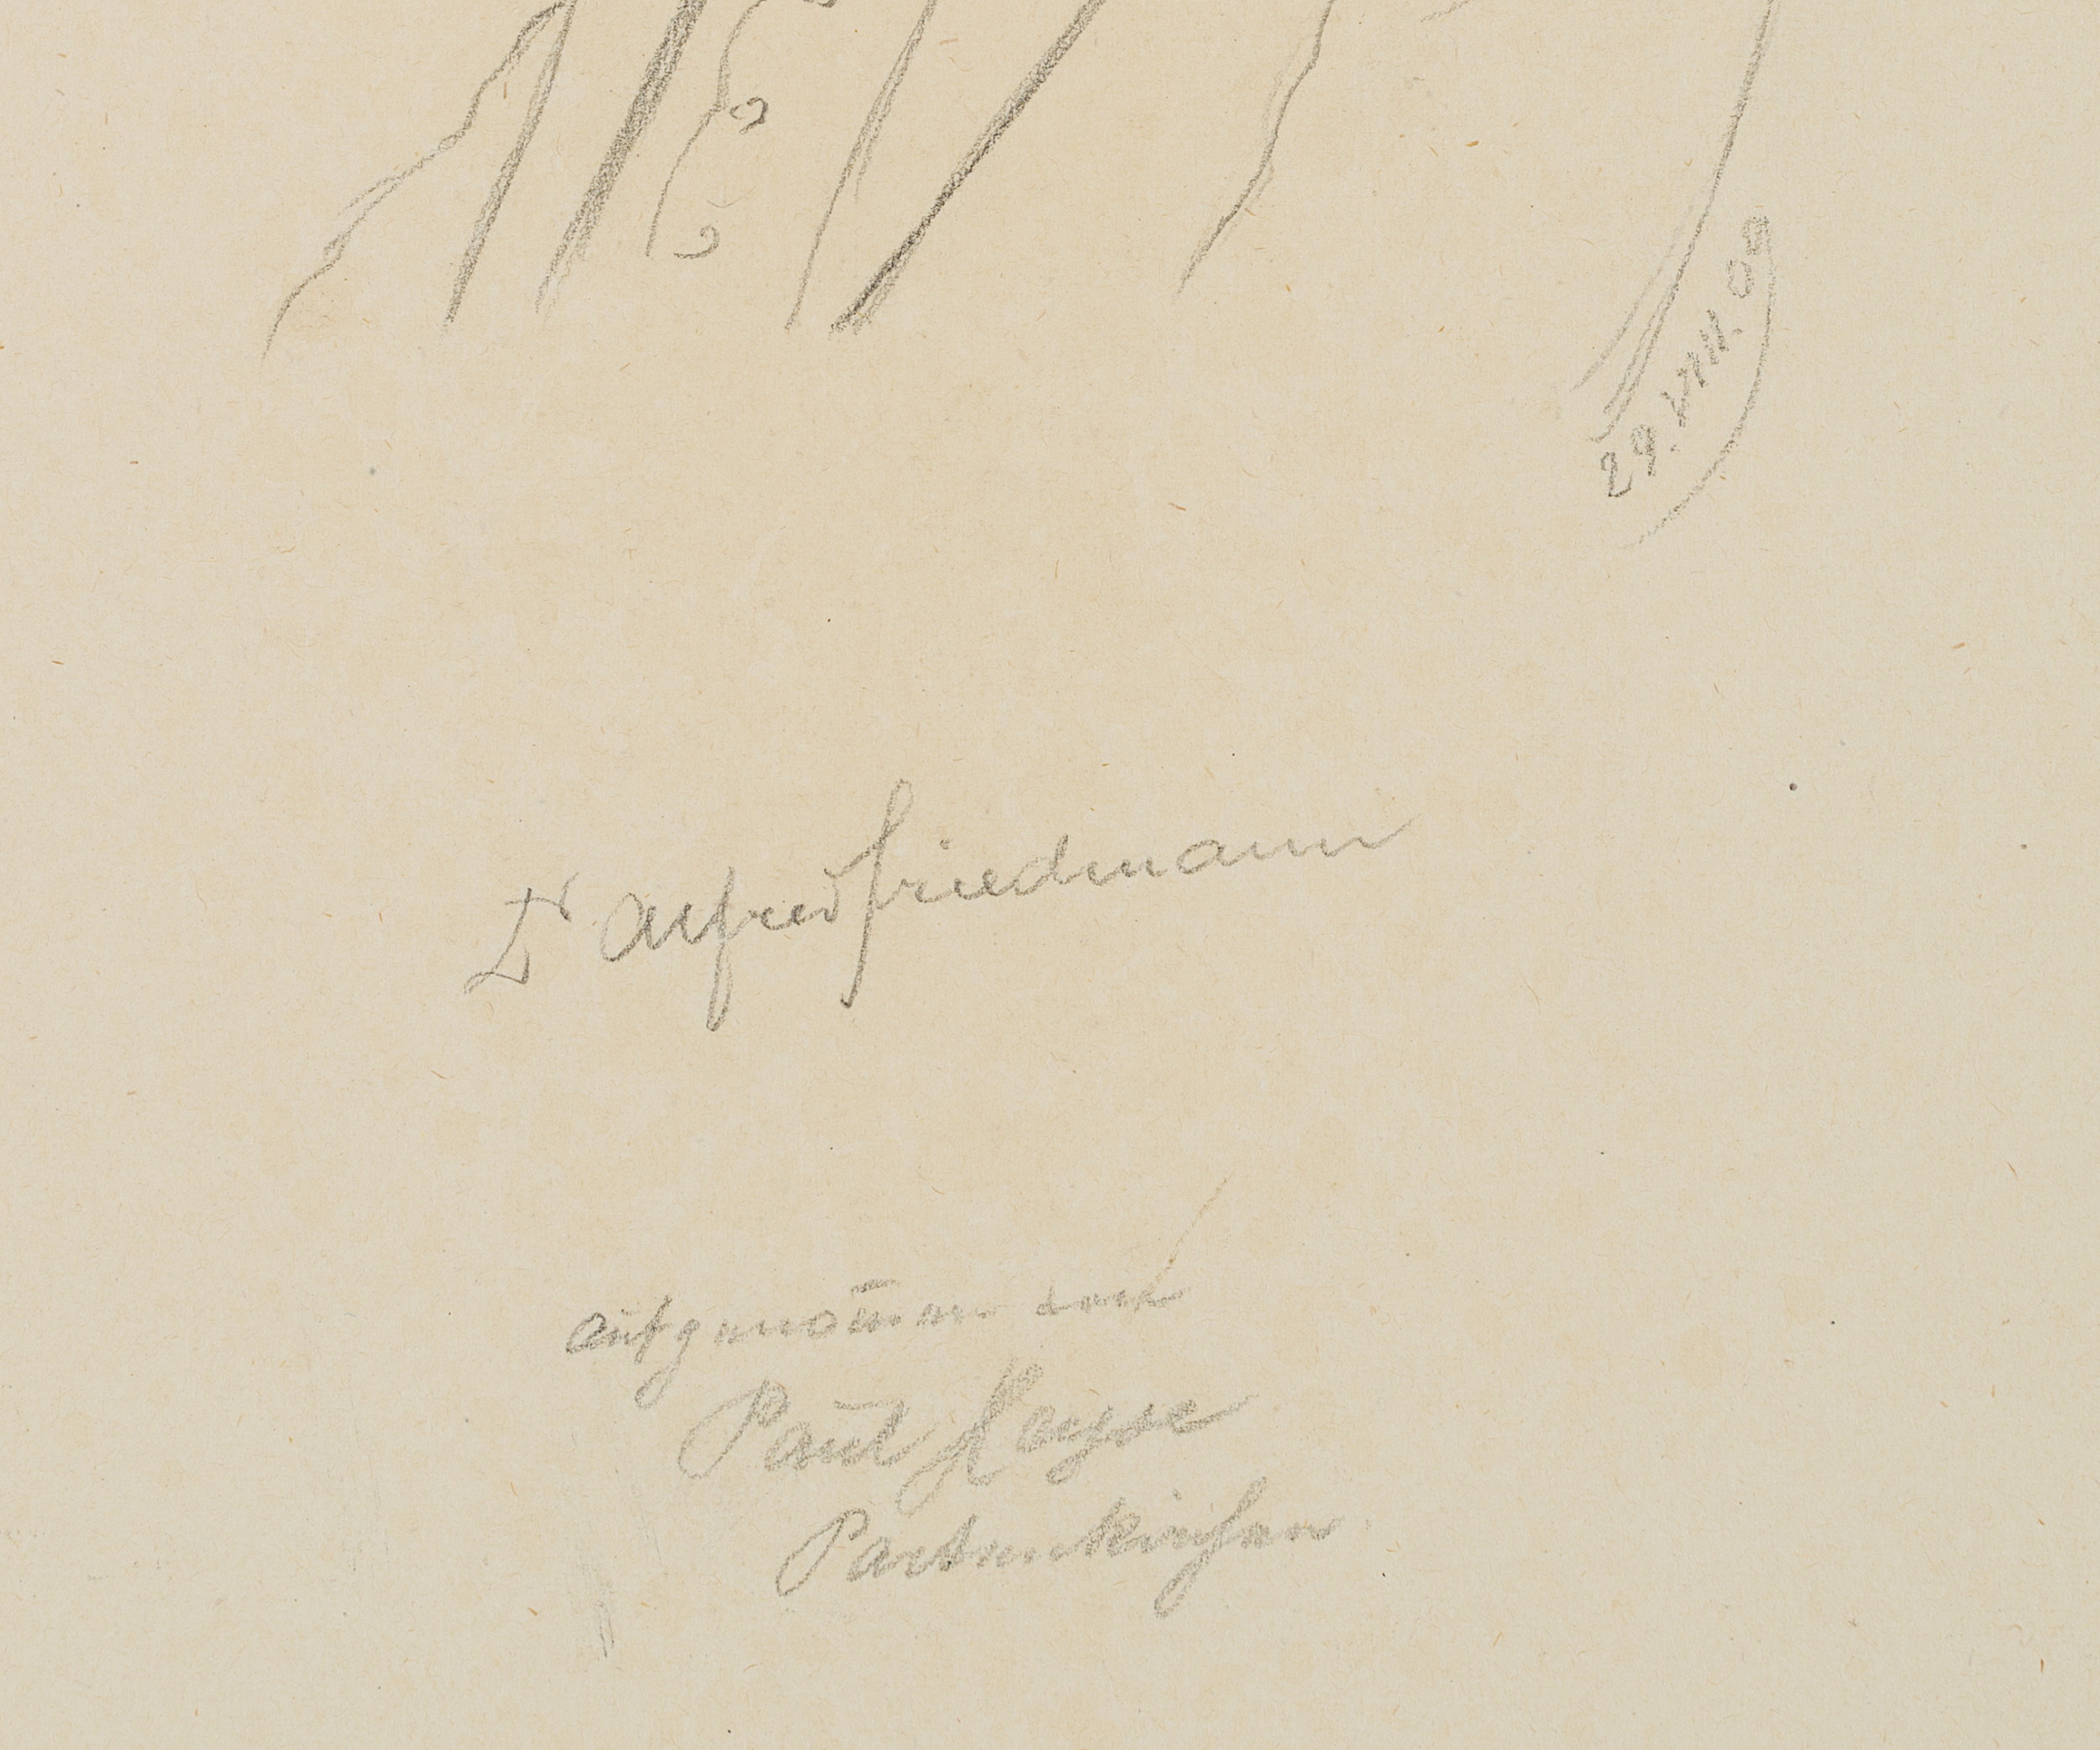 29. VIII. 09
Dr Alfred Friedmann
aufgenom̄en von
Paul Heyse
Partenkirchen